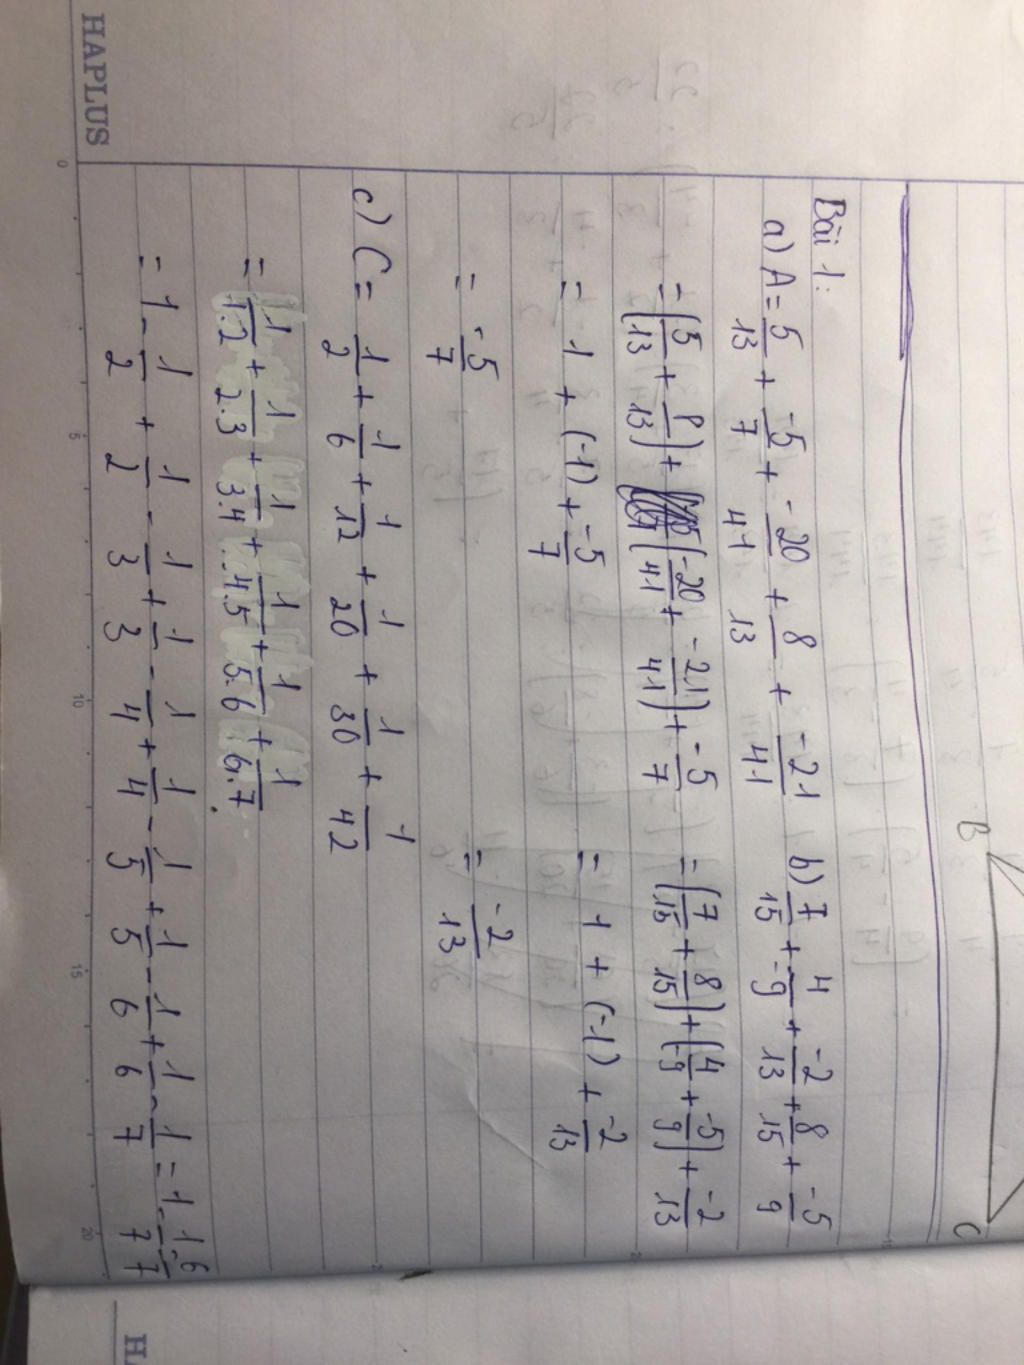 HAPLUS
B
C
Bài 1:
a) A = 5/13 + -5/7 + -20/41 + 8/13 + -21/41
= (5/13 + 8/13) + (-20/41 + -21/41) + -5/7
= 1 + (-1) + -5/7
= -5/7
b) 7/15 + 4/-9 + -2/13 + 8/15 + -5/9
= (7/15 + 8/15) + (4/-9 + -5/9) + -2/13
= 1 + (-1) + -2/13
= -2/13
c) C = 1/2 + 1/6 + 1/12 + 1/20 + 1/30 + 1/42
= 1/1.2 + 1/2.3 + 1/3.4 + 1/4.5 + 1/5.6 + 1/6.7
= 1 - 1/2 + 1/2 - 1/3 + 1/3 - 1/4 + 1/4 - 1/5 + 1/5 - 1/6 + 1/6 - 1/7 = 1 - 1/7 = 6/7
0 5 10 15 20